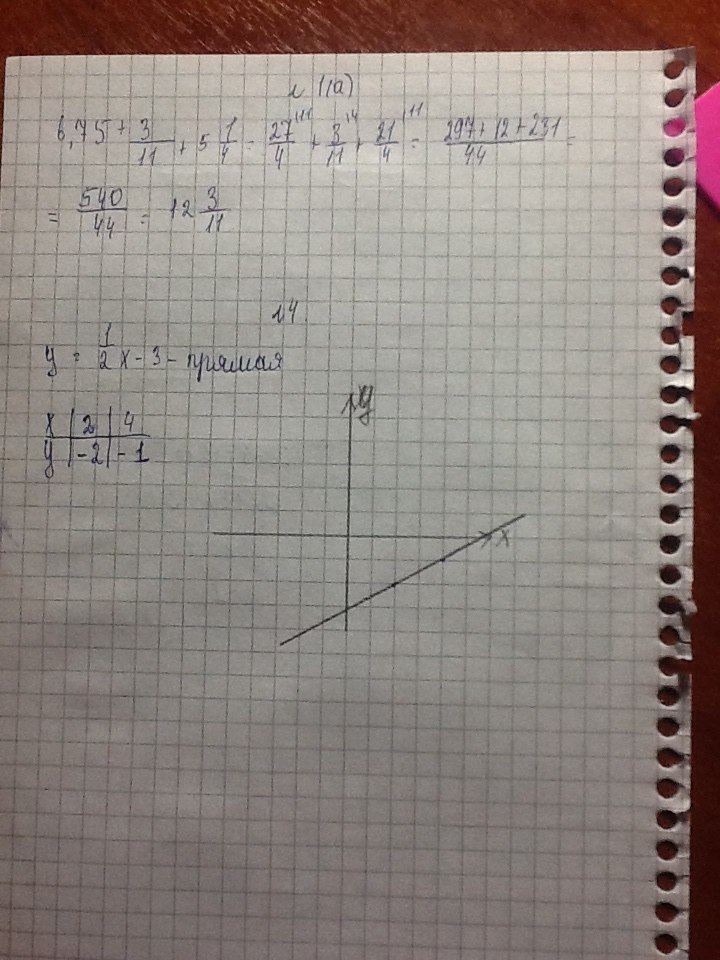 № 1(а)
6,75 + 3/11 + 5 1/4 = 27/4 |11 + 3/11 |4 + 21/4 |11 = 297+12+231/44 =
= 540/44 = 12 3/11
№4
y = 1/2 x - 3 - прямая
y
x | 2 | 4
y | -2 | -1
x